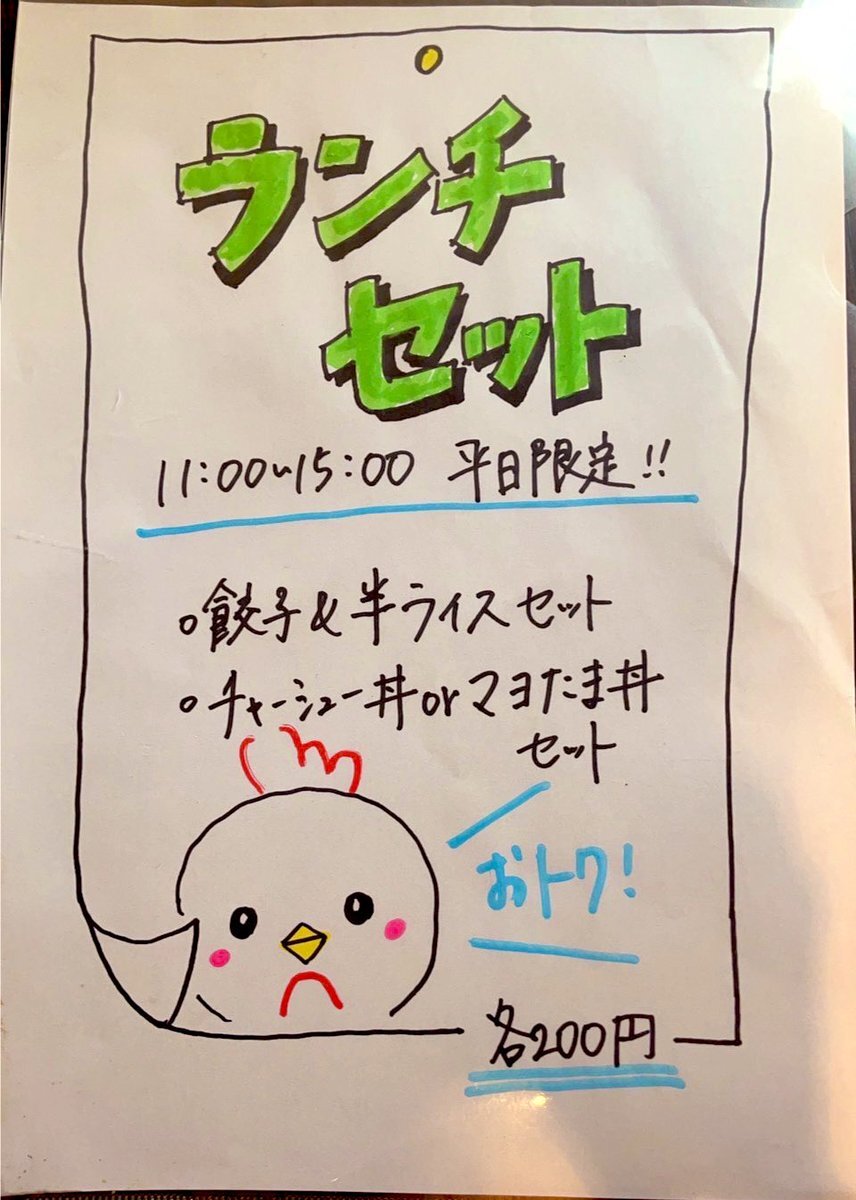 ランチ
セット
11:00~15:00 平日限定!!
○餃子&半ライスセット
○チャーシュー丼orマヨたま丼
セット
おトク!
各200円